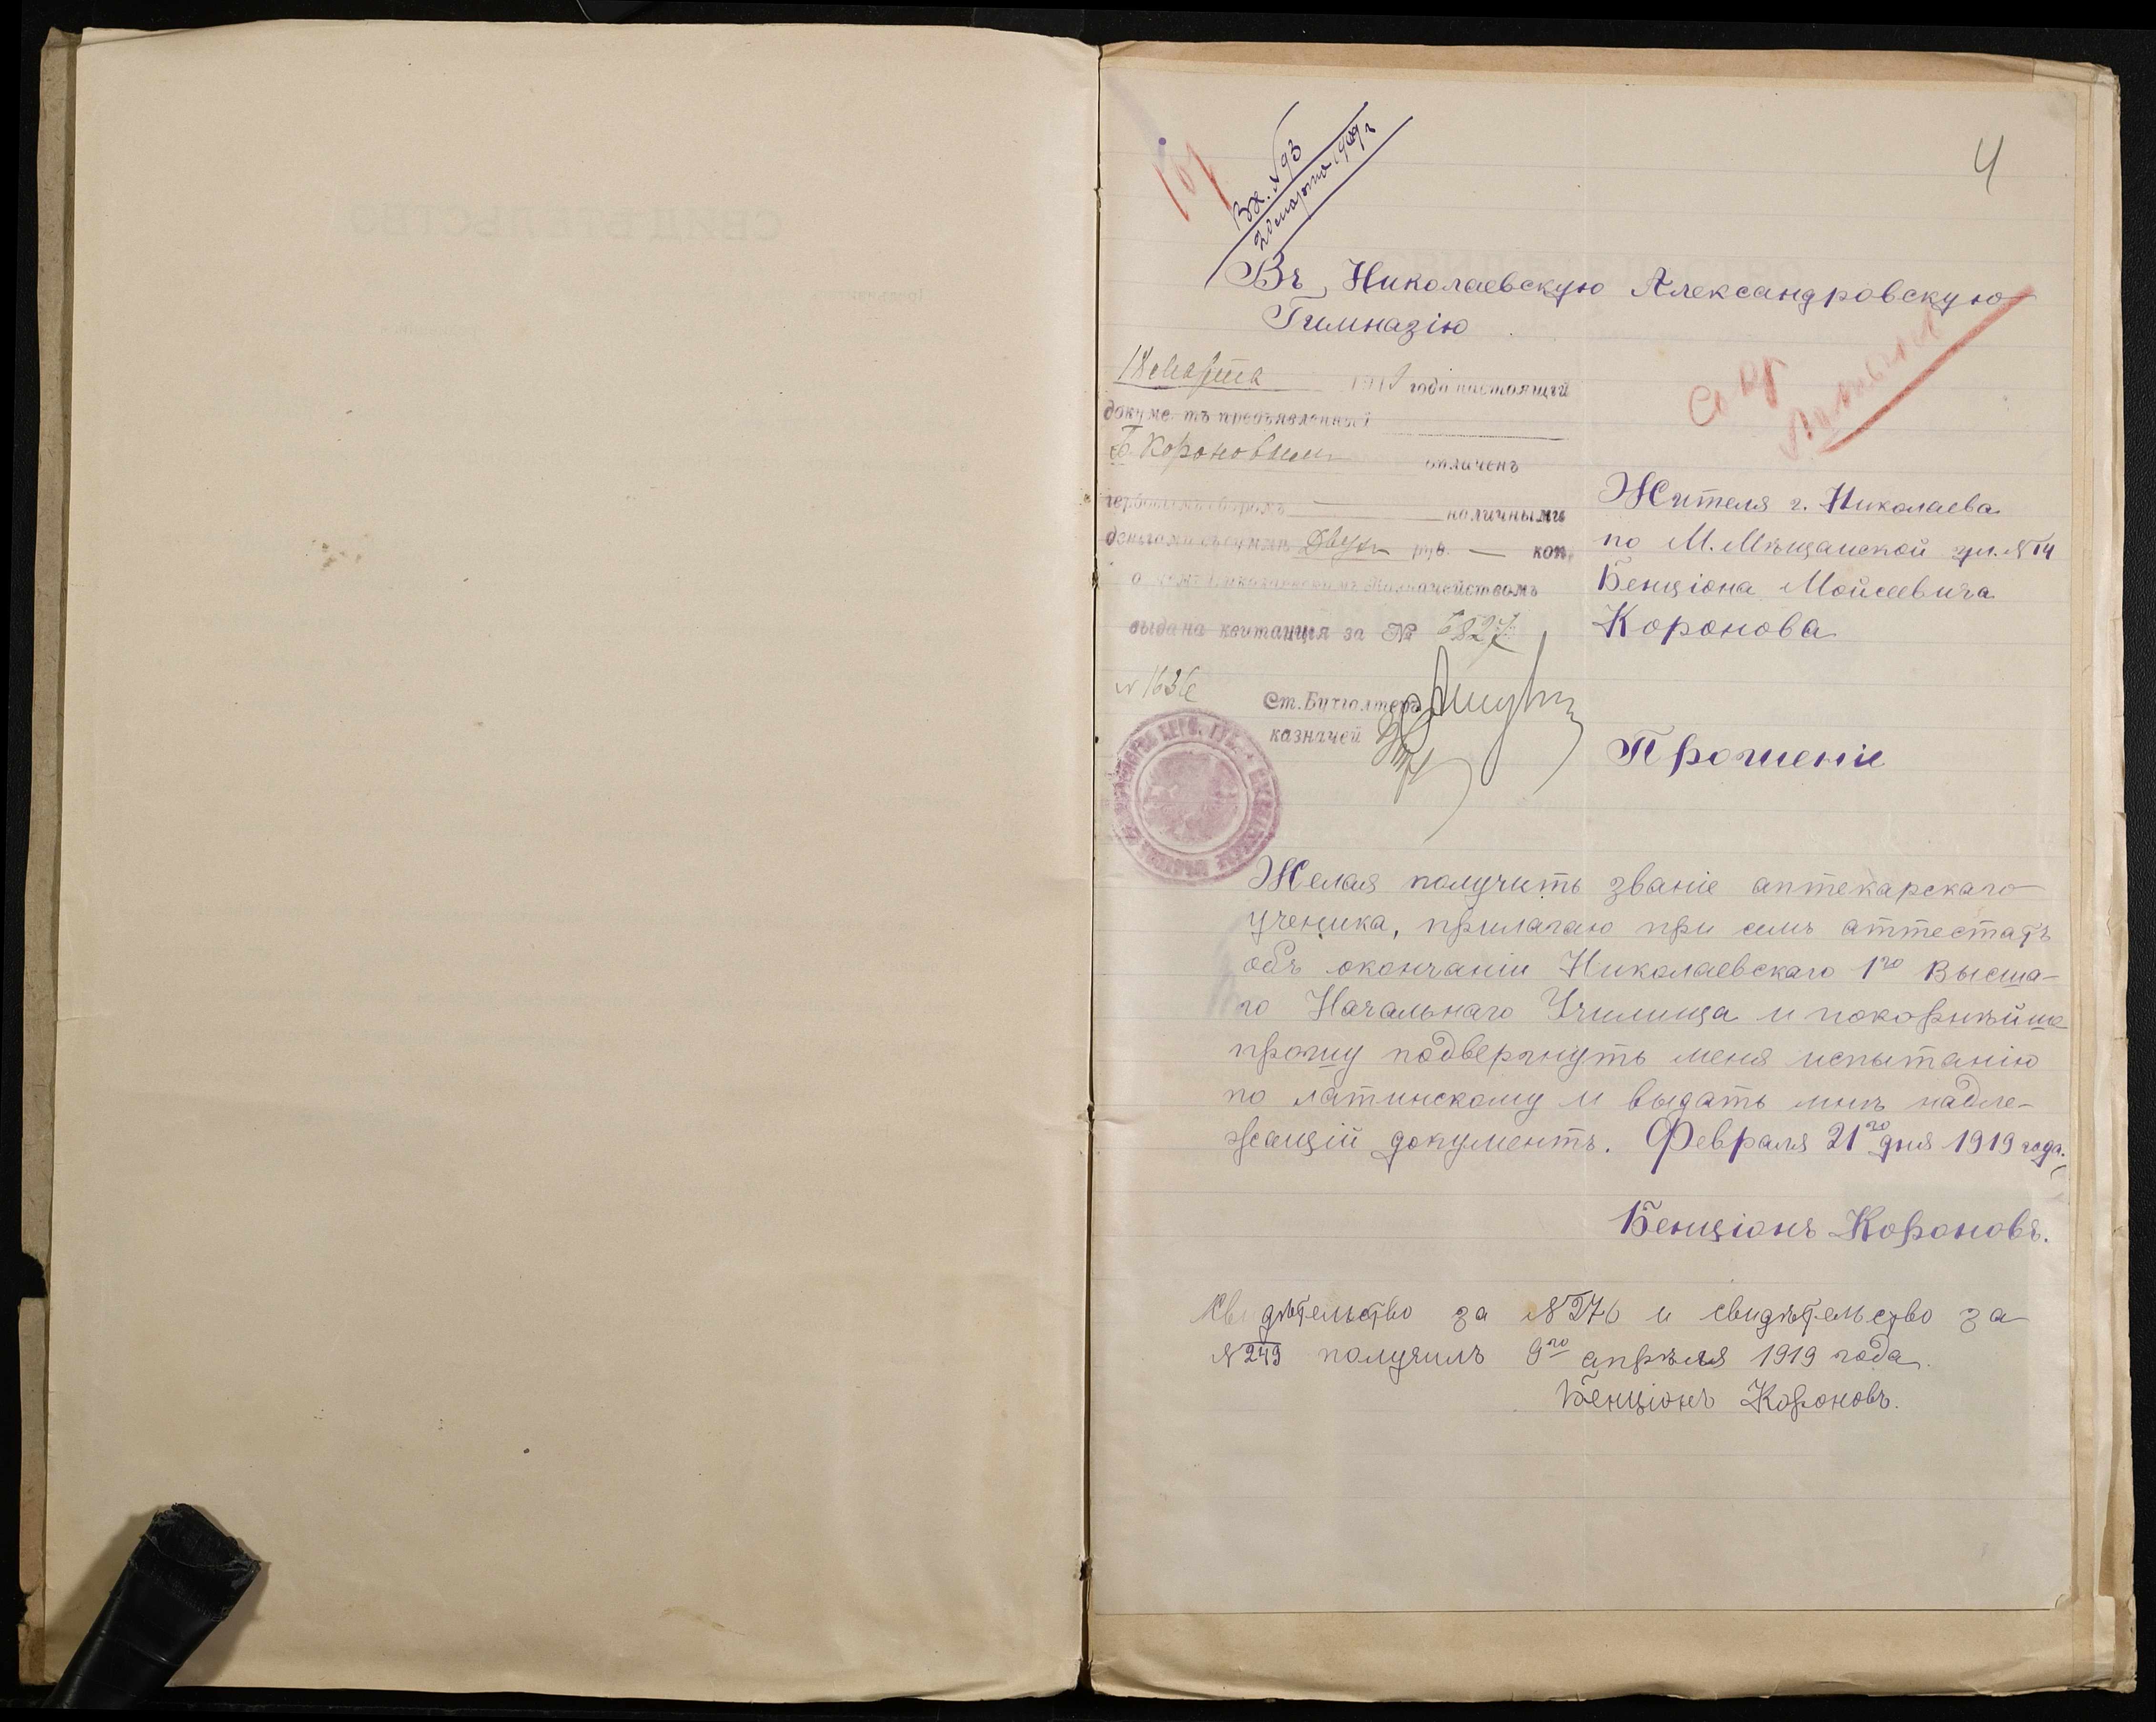 4
Вх. №93
20 марта 1919 г
Въ Николаевскую Александровскую
Гимназію
18 марта 1919 года настоящій
документъ предъявленный
Б. Короновымъ оплаченъ
гербовымъ сборомъ — наличными
деньгами въ суммѣ Двухъ руб. — коп.
о чемъ Николаевскимъ Казначействомъ
выдана квитанція за №
Ст. Бухгалтеръ
казначей
Жителя г. Николаева
по М. Мѣщанской ул. №14
Бенціона Мойсеевича
Коронова
Прошеніе
Желая получить званіе аптекарскаго
ученика, прилагаю при семъ аттестатъ
объ окончаніи Николаевскаго 1го Высша-
го Начальнаго Училища и покорнѣйше
прошу подвергнуть меня испытанію
по латинскому и выдать мнѣ надле-
жащій документъ. Февраля 21го дня 1919 года.
Бенціонъ Короновъ.
Свидѣтельство за №276 и свидѣтельство за
№249 получилъ 9го апрѣля 1919 года.
Бенціонъ Короновъ.